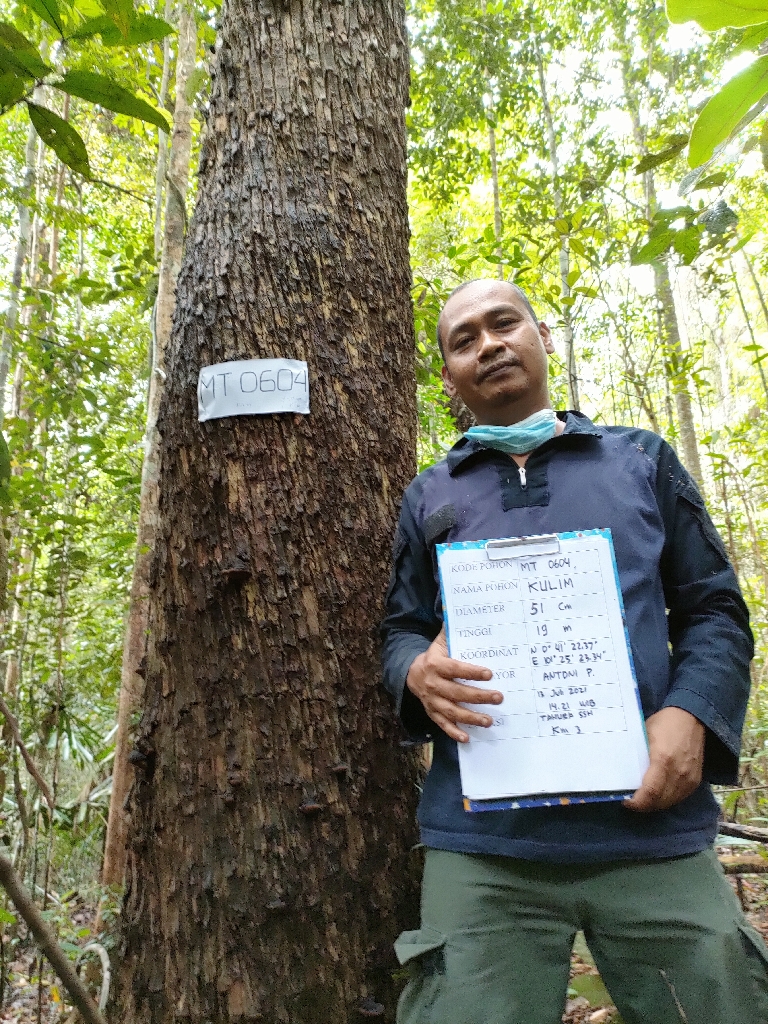 MT 0604
KODE POHON MT 0604
NAMA POHON KULIM
DIAMETER 51 Cm
TINGGI 19 m
KOORDINAT N 0° 41' 22.37"
E 101° 25' 23.34"
YOR ANTONI P.
2021
14.21 WIB
TAHURA SSH
Km 3